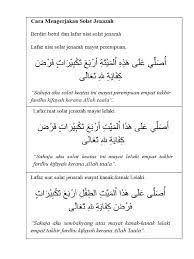 Cara Mengerjakan Solat Jenazah
Berdiri betul dan lafaz niat solat jenazah
Lafaz niat solat jenazah mayat perempuan.
أُصَلِّي عَلَى هَذِهِ الْمَيِّتَةِ أَرْبَعَ تَكْبِيْرَاتٍ فَرْضَ
كِفَايَةٍ للهِ تَعَالَى
"Sahaja aku solat keatas ini mayat perempuan empat takbir
fardhu kifayah kerana Allah taala".
Lafaz niat solat jenazah mayat lelaki
أُصَلِّي عَلَى هَذَا الْمَيِّتِ أَرْبَعَ تَكْبِيْرَاتٍ فَرْضَ
كِفَايَةٍ للهِ تَعَالَى
"Sahaja aku solat keatas ini mayat lelaki empat takbir
fardhu kifayah kerana Allah taala".
Lafaz niat solat jenazah mayat kanak-kanak lelaki
أُصَلِّي عَلَى هَذَا الْمَيِّتِ الطِّفْلِ أَرْبَعَ تَكْبِيْرَاتٍ
فَرْضَ كِفَايَةٍ للهِ تَعَالَى
"Sahaja aku sembahyang atas mayat kanak-kanak lelaki
empat takbir fardhu kifayah kerana Allah Taala".